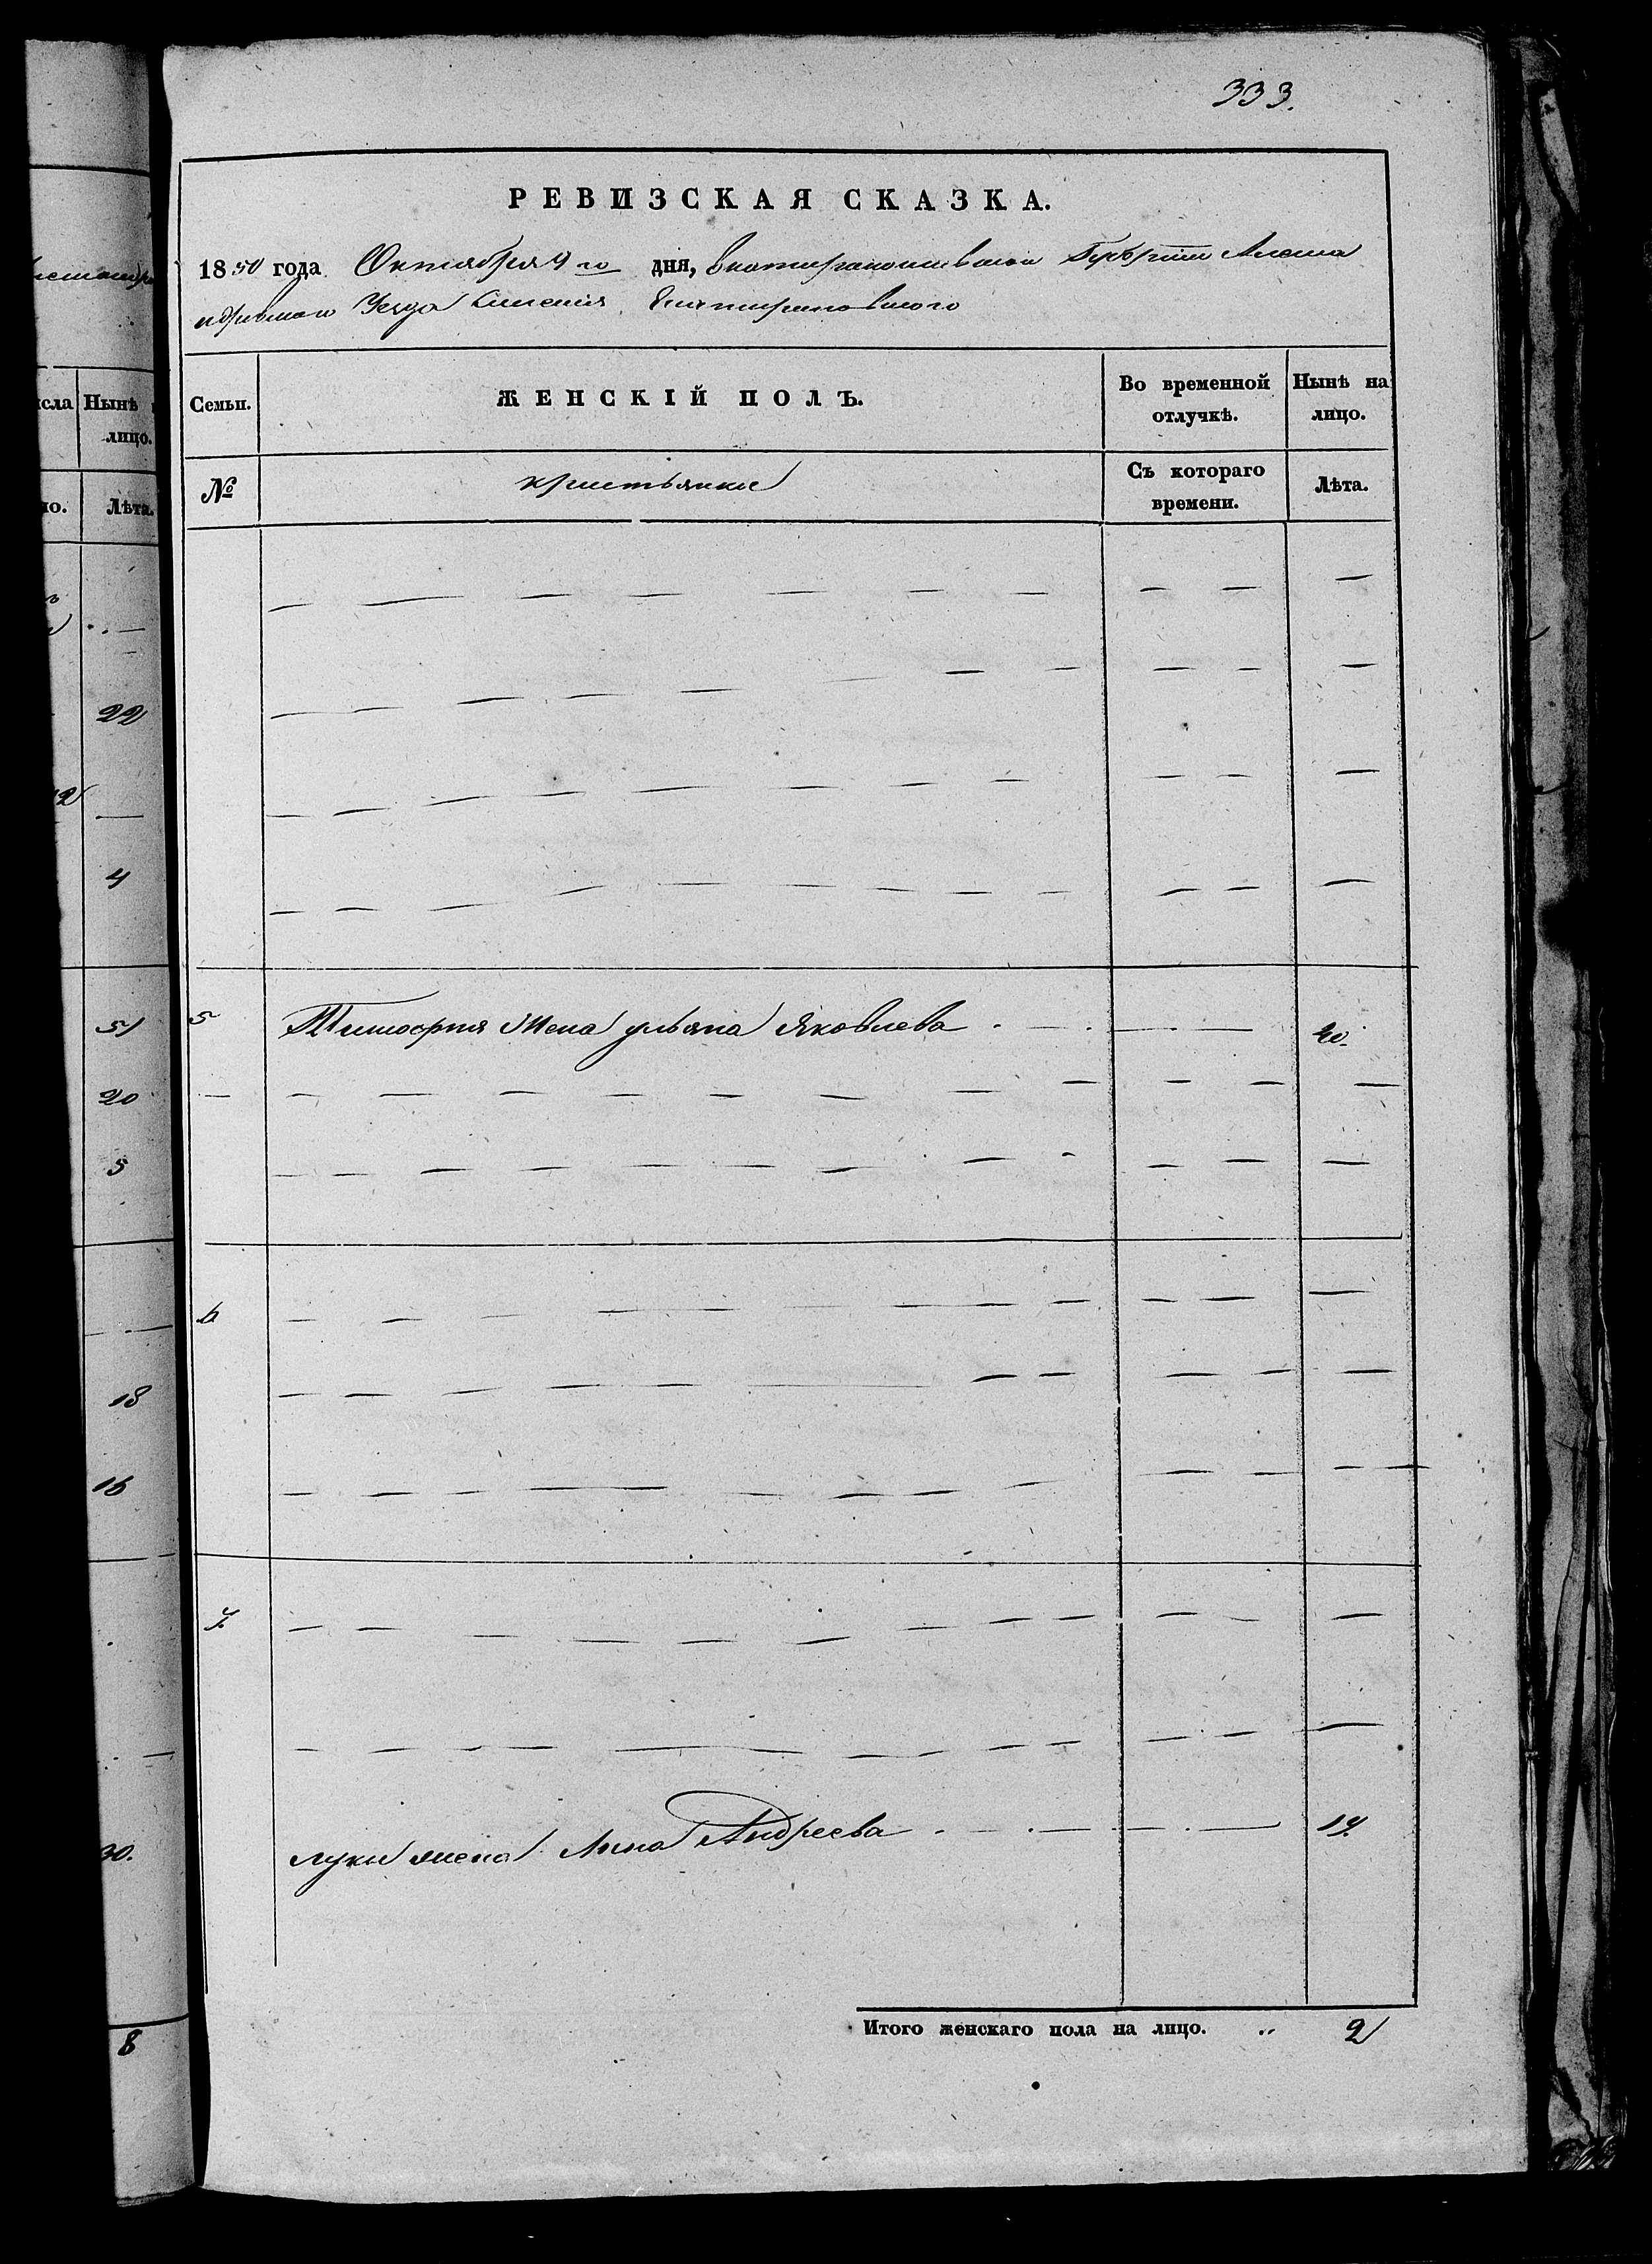 333.
РЕВИЗСКАЯ СКАЗКА.
1850 года Октября 9го дня, Екатеринославской Губернии Алекса
ндровского Уезда Имения Екатериновского
Семьи.
ЖЕНСКІЙ ПОЛЪ.
Во временной отлучкѣ.
Нынѣ на лицо.
№
крестьянки
Съ котораго времени.
Лѣта.
5 Тимофея жена ульяна Яковлева 40.
6
7.
Луки жена Анна Андреева 19.
Итого женскаго пола на лицо. 2
сла Нынѣ
лицо.
Лѣта.
22
4
51
20
5
18
16
30.
8